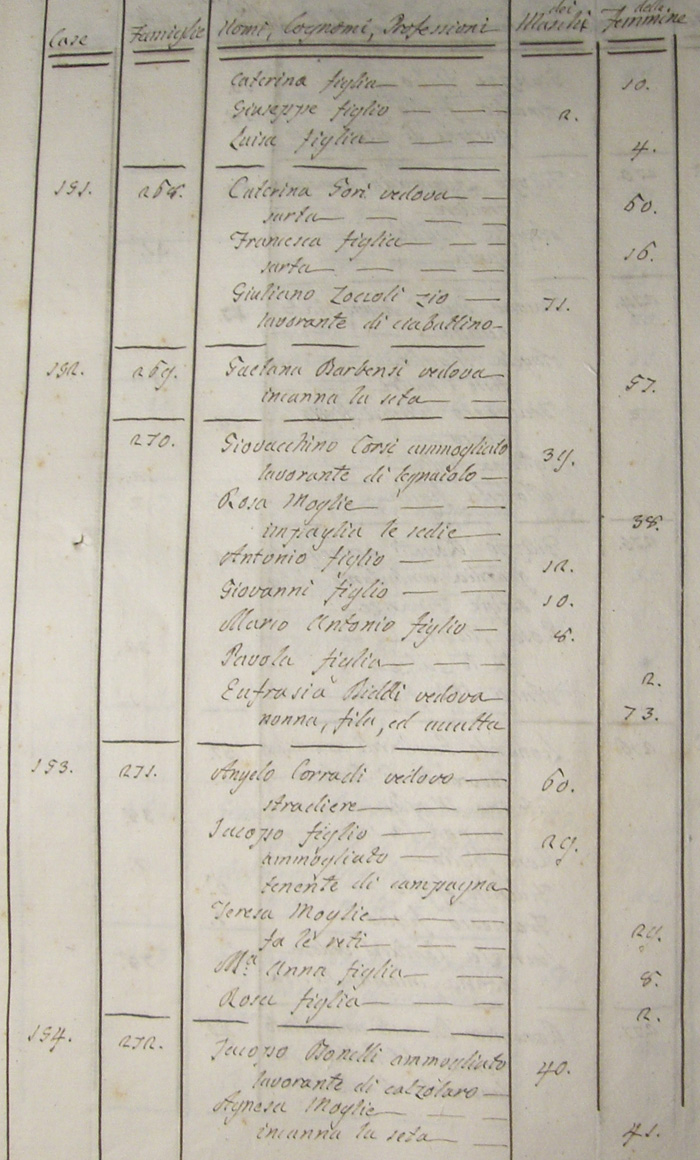 Case Famiglie Nomi, Cognomi, Professioni dei Maschi delle Femmine
Caterina figlia 10.
Giuseppe figlio 2.
Luisa figlia 4.
191. 268. Caterina Gori vedova
sarta 60.
Francesca figlia
sarta 16.
Giuliano Zoccoli zio 71.
lavorante di ciabattino
192. 269. Gaetana Barbensi vedova
incanna la seta 57.
270. Giovacchino Corsi ammogliato 39.
lavorante di legnaiolo
Rosa Moglie
impaglia le sedie 38.
Antonio figlio 12.
Giovanni figlio 10.
Marco Antonio figlio 8.
Pavola figlia 2.
Eufrasia vedova
nonna, fila, ed accatta 73.
193. 271. Angelo Corradi vedovo 60.
stradiere
Jacopo figlio 29.
ammogliato
tenente di campagna
Teresa Moglie
fa le reti 29.
M.a Anna figlia 8.
Rosa figlia 2.
194. 272. Jacopo Bonelli ammogliato 40.
lavorante di calzolaro
Agnesa Moglie
incanna la seta 41.